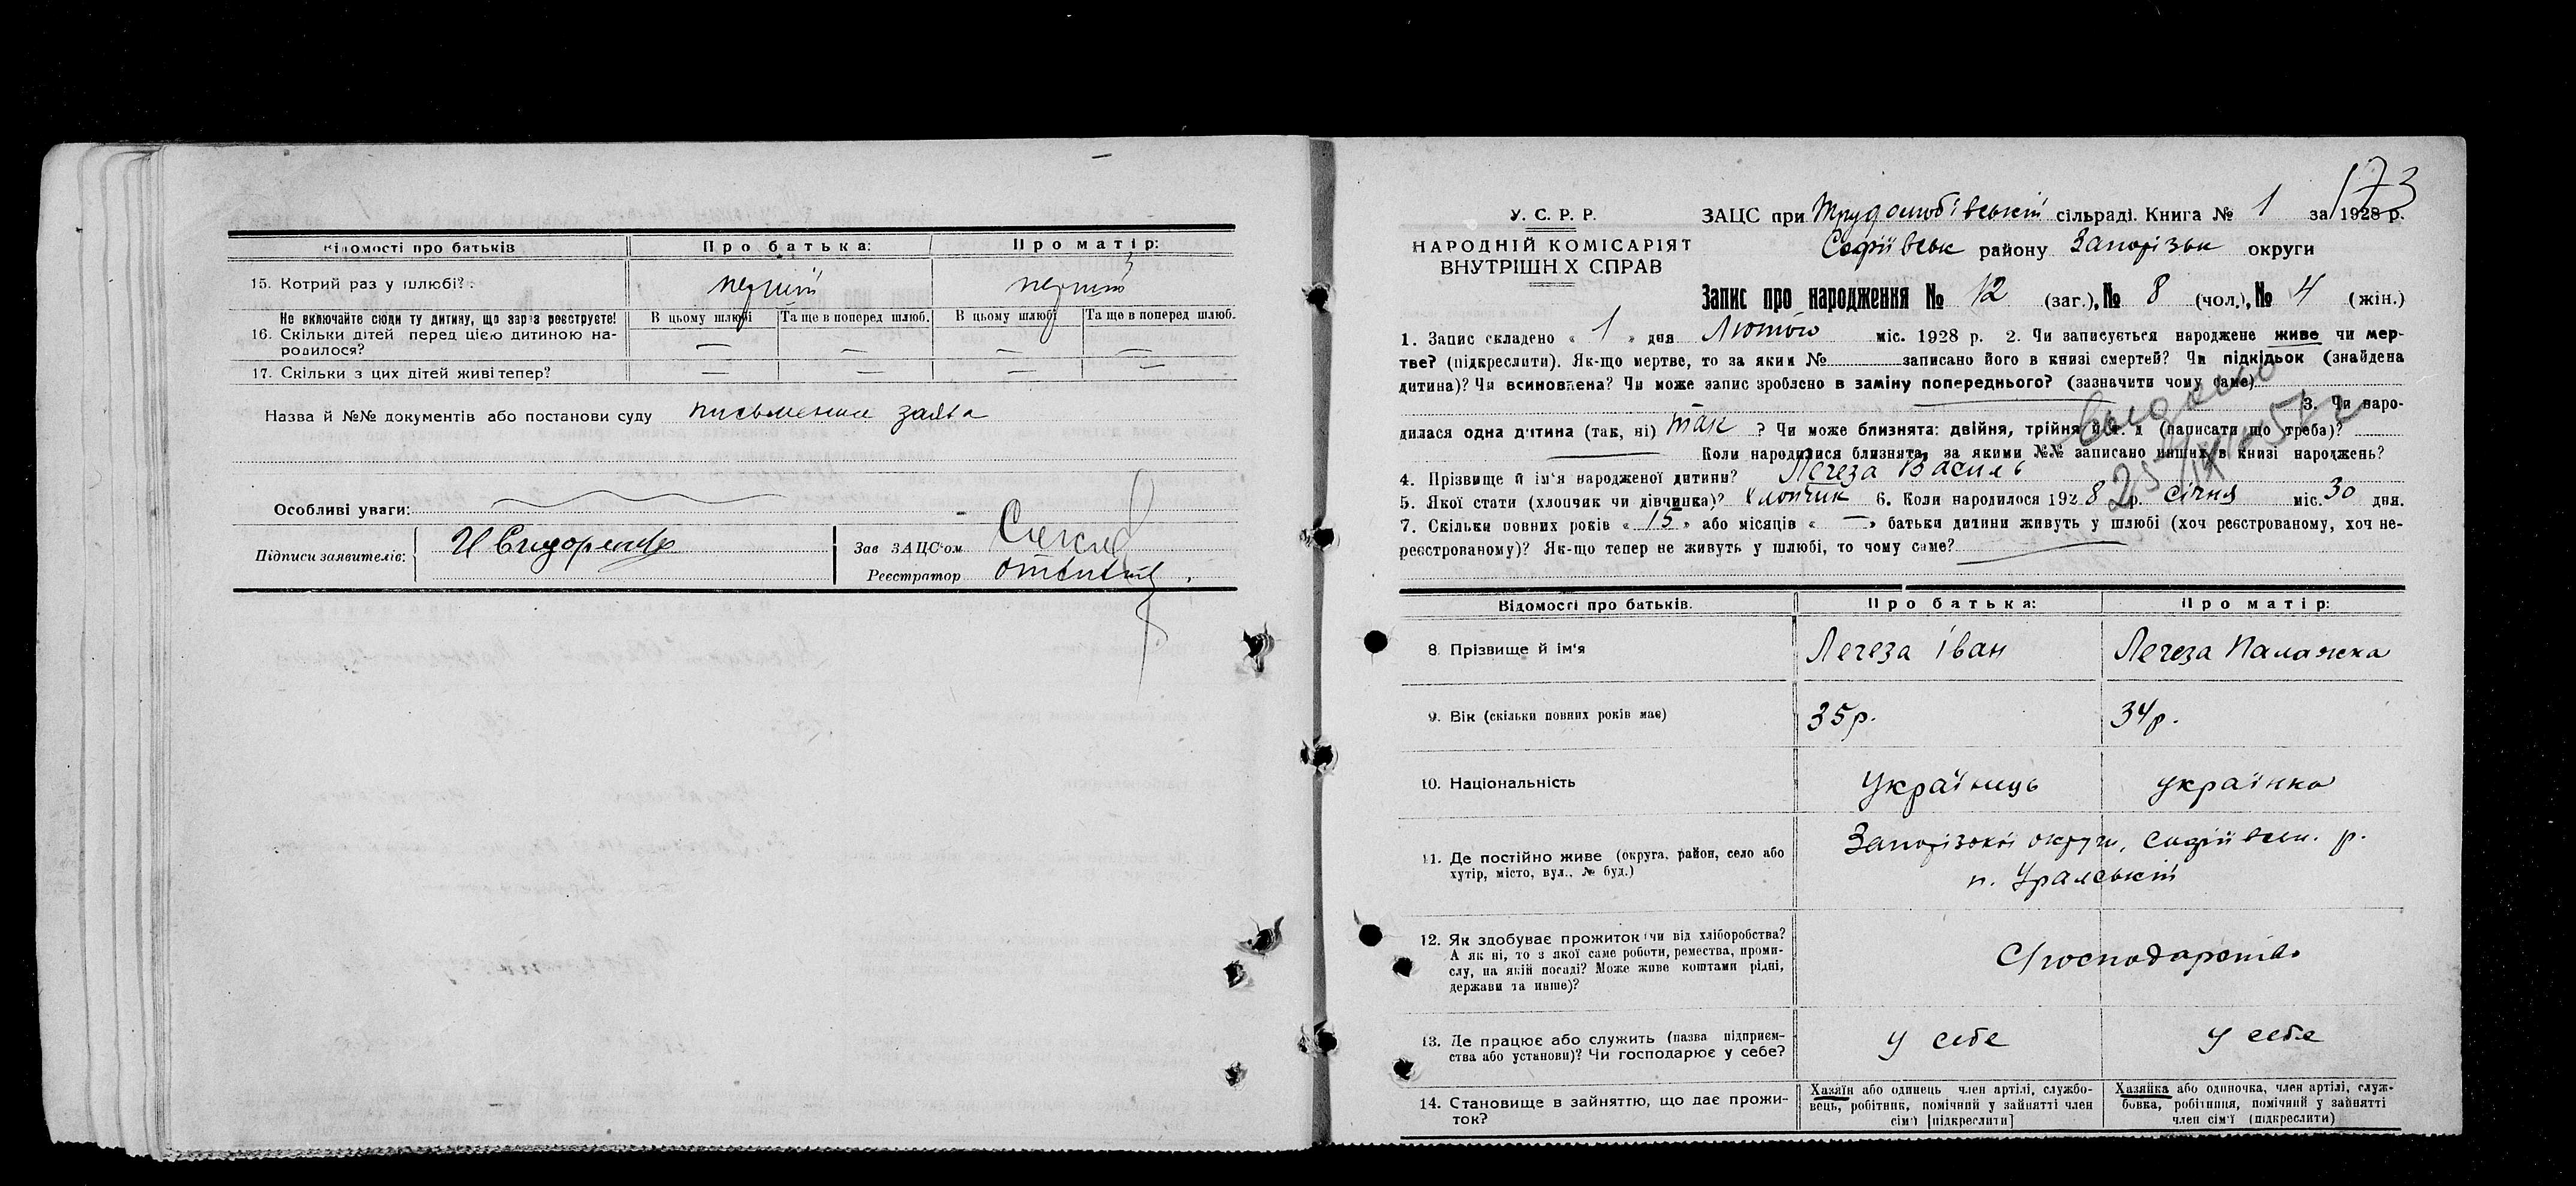 Відомості про батьків
Про батька:
Про матір:
15. Котрий раз у шлюбі?
перший
перший
Не включайте сюди ту дитину, що зараз реєструєте!
В цьому шлюбі
Та ще в поперед шлюб.
В цьому шлюбі
Та ще в поперед шлюб.
16. Скільки дітей перед цією дитиною на-
родилося?
—
—
—
—
17. Скільки з цих дітей живі тепер?
—
—
—
—
Назва й №№ документів або постанови суду письменна заява
Особливі уваги:
Підписи заявителів:
Зав ЗАЦС'ом
Реєстратор
173
У. С. Р. Р.
НАРОДНІЙ КОМІСАРІЯТ
ВНУТРІШН Х СПРАВ
ЗАЦС при Трудолюбівській сільраді. Книга № 1 за 1928 р.
Софіївськ району Запорізьк округи
Запис про народження № 12 (заг.), № 8 (чол.), № 4 (жін.)
1. Запис складено « 1 » дня Лютого міс. 1928 р. 2. Чи записується народжене живе чи мер-
тве? (підкреслити). Як-що мертве, то за яким № записано його в книзі смертей? Чи підкідьок (знайдена
дитина)? Чи всиновлена? Чи може запис зроблено в заміну попереднього? (зазначити чому саме)
3. Чи наро-
дилася одна дитина (так, ні) так ? Чи може близнята: двійня, трійня й т. д (написати що треба)?
Коли народилися близнята, за якими №№ записано инших в книзі народжень?
4. Прізвище й ім'я народженої дитини? Легеза Василь
5. Якої стати (хлопчик чи дівчинка)? Хлопчик 6. Коли народилося 1928 р. січня міс. 30 дня.
7. Скільки повних років « 15 » або місяців « — » батьки дитини живуть у шлюбі (хоч реєстрованому, хоч не-
реєстрованому)? Як-що тепер не живуть у шлюбі, то чому саме?
Відомості про батьків.
Про батька:
Про матір:
8. Прізвище й ім'я
Легеза Іван
Легеза Палажка
9. Вік (скільки повних років має)
35 р.
34 р.
10. Національність
Українець
українка
11. Де постійно живе (округа, район, село або
хутір, місто, вул., № буд.)
Запорізької округи, Софіївськ. р.
п. Уральський
12. Як здобуває прожиток чи від хліборобства?
А як ні, то з якої саме роботи, ремества, проми-
слу, на якій посаді? Може живе коштами рідні,
держави та инше)?
С/господарство
13. Де працює або служить (назва підприєм-
ства або установи)? Чи господарює у себе?
У себе
У себе
14. Становище в зайняттю, що дає прожи-
ток?
Хазяїн або одинець член артілі, службо-
вець, робітник, помічний у зайнятті член
сім'ї [підкреслити]
Хазяйка або одиночка, член артілі, служ-
бовка, робітниця, помічний у зайнятті
член сім'ї (підкреслити)